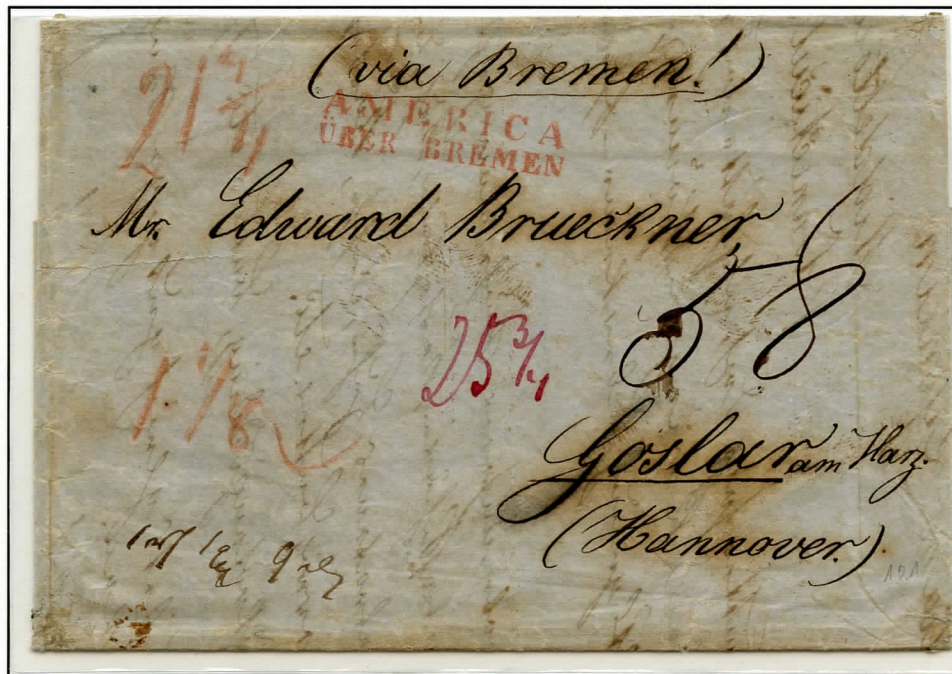 (via Bremen!)
21 3/4
AMERICA
ÜBER BREMEN
Mr. Edward Brueckner,
58
25 3/4
1 1/8
Goslar am Harz.
(Hannover.)
121